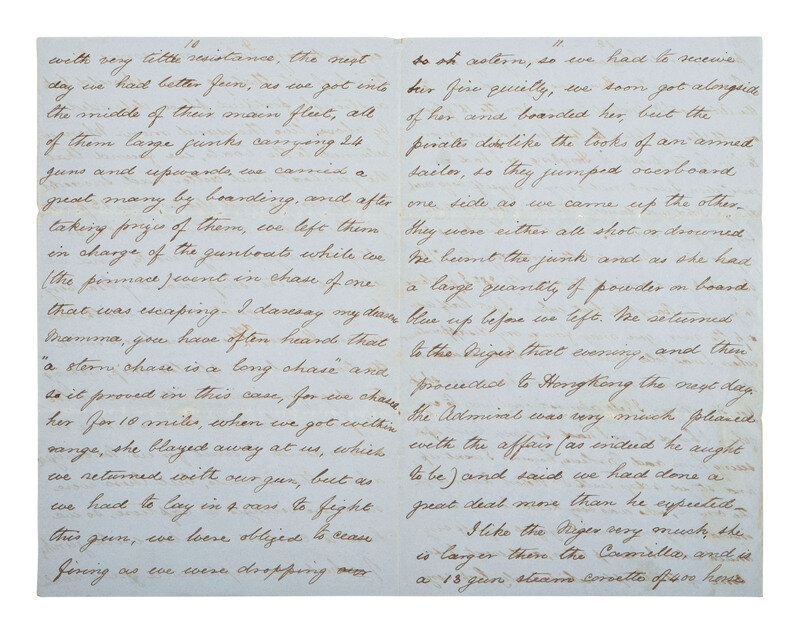 10
with very little resistance, the next
day we had better fun, as we got into
the middle of their main fleet, all
of them large junks carrying 24
guns and upwards, we carried a
great many by boarding, and after
taking prizes of them, we left them
in charge of the gunboats while we
(the pinnace) went in chase of one
that was escaping - I daresay my dearest
Mamma, you have often heard that
"a stern chase is a long chase" and
so it proved in this case, for we chased
her for 10 miles, when we got within
range, she blazed away at us, which
we returned with our gun, but as
we had to lay in 4 oars to fight
this gun, we were obliged to cease
firing as we were dropping
11
astern, so we had to receive
her fire quietly, we soon got alongside
of her and boarded her, but the
pirates dont like the looks of an armed
sailor, so they jumped overboard
one side as we came up the other -
They were either all shot or drowned
We burnt the junk and as she had
a large quantity of powder on board
blue up before we left. We returned
to the Niger that evening, and then
proceeded to HongKong the next day.
The Admiral was very much pleased
with the affair (as indeed he aught
to be) and said we had done a
great deal more than he expected -
I like the Niger very much, she
is larger then the Camilla, and is
a 13 gun steam corvette of 400 horse